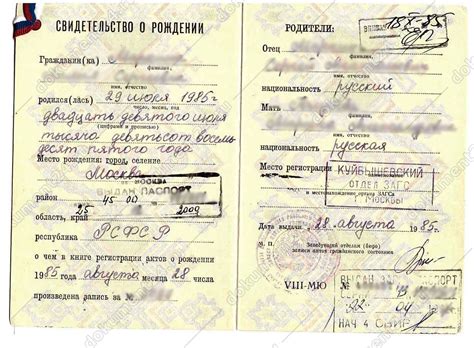 СВИДЕТЕЛЬСТВО О РОЖДЕНИИ
Гражданин(ка)
фамилия,
имя, отчество
родился(лась) 29 июня 1985 г
число, месяц, год
двадцать девятого июня
(цифрами и прописью)
тысяча девятьсот восемь
десят пятого года
Место рождения: город, селение
Москва
МОСКВА
ВЫДАН ПАСПОРТ
район 45 00
25 2009
область, край
республика РСФСР
о чем в книге регистрации актов о рождении
1985 года августа месяца 28 числа
произведена запись за №
РОДИТЕЛИ:
18 X- 85
Отец
фамилия,
имя, отчество
национальность русский
Мать
фамилия,
имя, отчество
национальность русская
Место регистрации КУЙБЫШЕВСКИЙ
ОТДЕЛ ЗАГС
и местонахождение органа ЗАГС
г. МОСКВЫ
Дата выдачи 28 августа 1985 г.
М. П.
Заведующий отделом (бюро)
записи актов гражданского состояния
VIII-МЮ №
ВЫДАН ПАСПОРТ
45
22 04
НАЧ 4 ОВИР